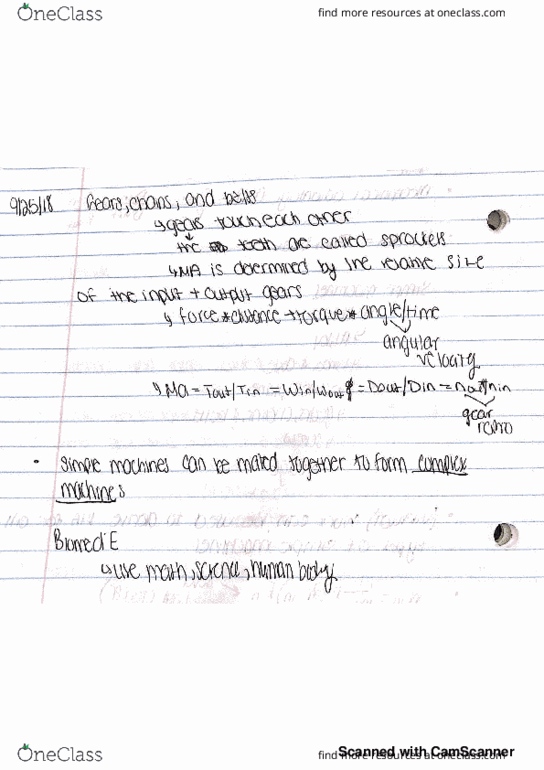 OneClass
find more resources at oneclass.com
9/25/18 Gears, chains, and belts
↳ gears touch each other
↓
the teeth are called sprockets
↳ MA is determined by the relative size
of the input + output gears
↳ force * distance → torque * angle/time
angular
velocity
↳ MA = Tout/Tin = Win/Wout = Dout/Din = nout/nin
gear
ratio
• Simple machines can be mated together to form complex
machines
BiomediE
↳ use math, science, human body
OneClass
find more resources at oneclass.com
Scanned with CamScanner